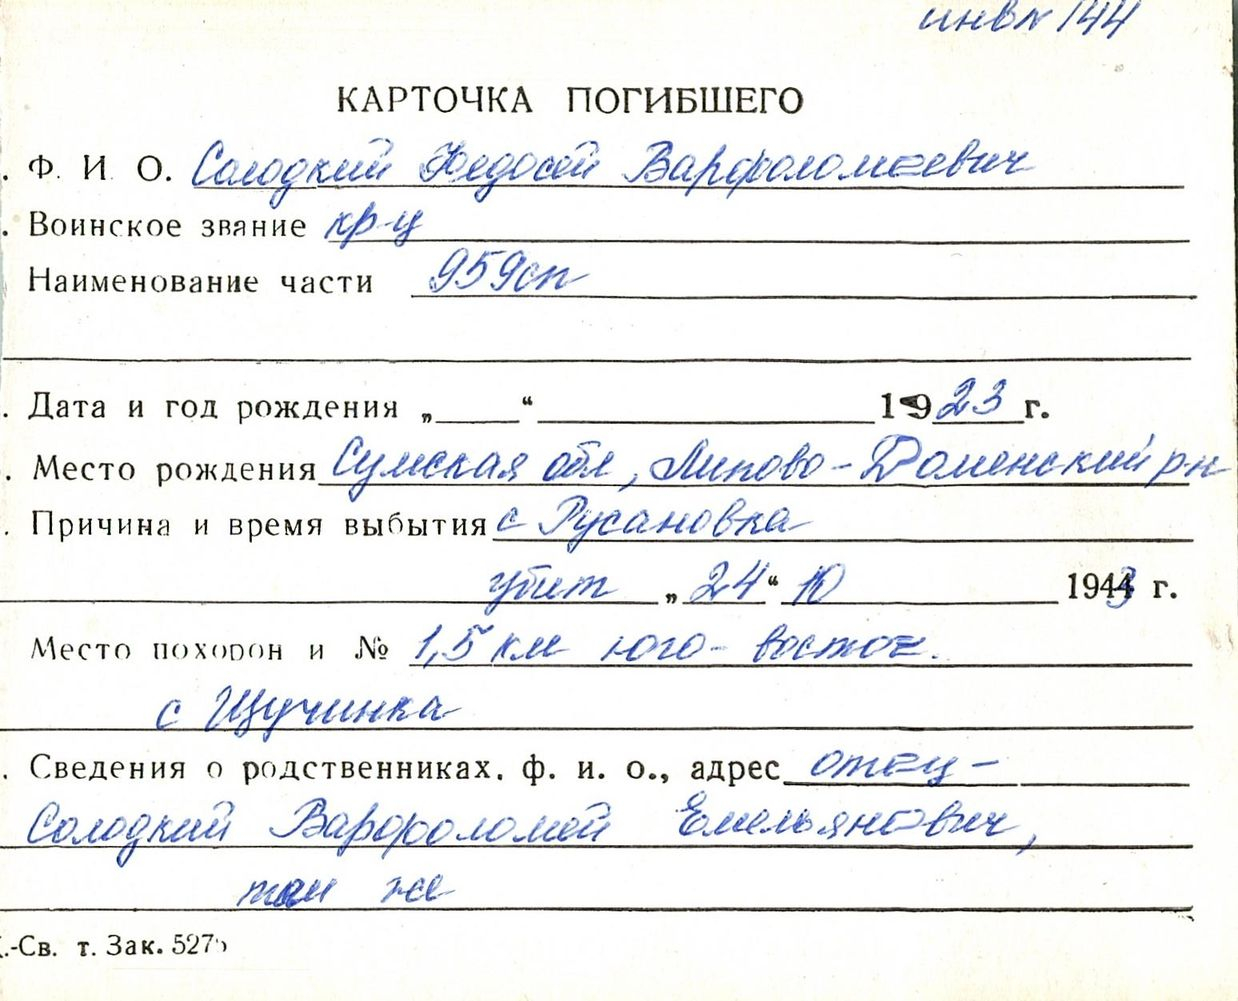 инв № 144
КАРТОЧКА ПОГИБШЕГО
. Ф. И. О. Солодкий Федосей Варфоломеевич
. Воинское звание кр-ц
Наименование части 959 сп
. Дата и год рождения „ “ 1923 г.
. Место рождения Сумская обл, Липово-Доменский р-н
. Причина и время выбытия с Русановка
убит „24“ 10 1943 г.
Место похорон и № 1,5 км юго-восточ.
с Щучинка
. Сведения о родственниках, ф. и. о., адрес отец -
Солодкий Варфоломей Емельянович,
там же
.-Св. т. Зак. 5275